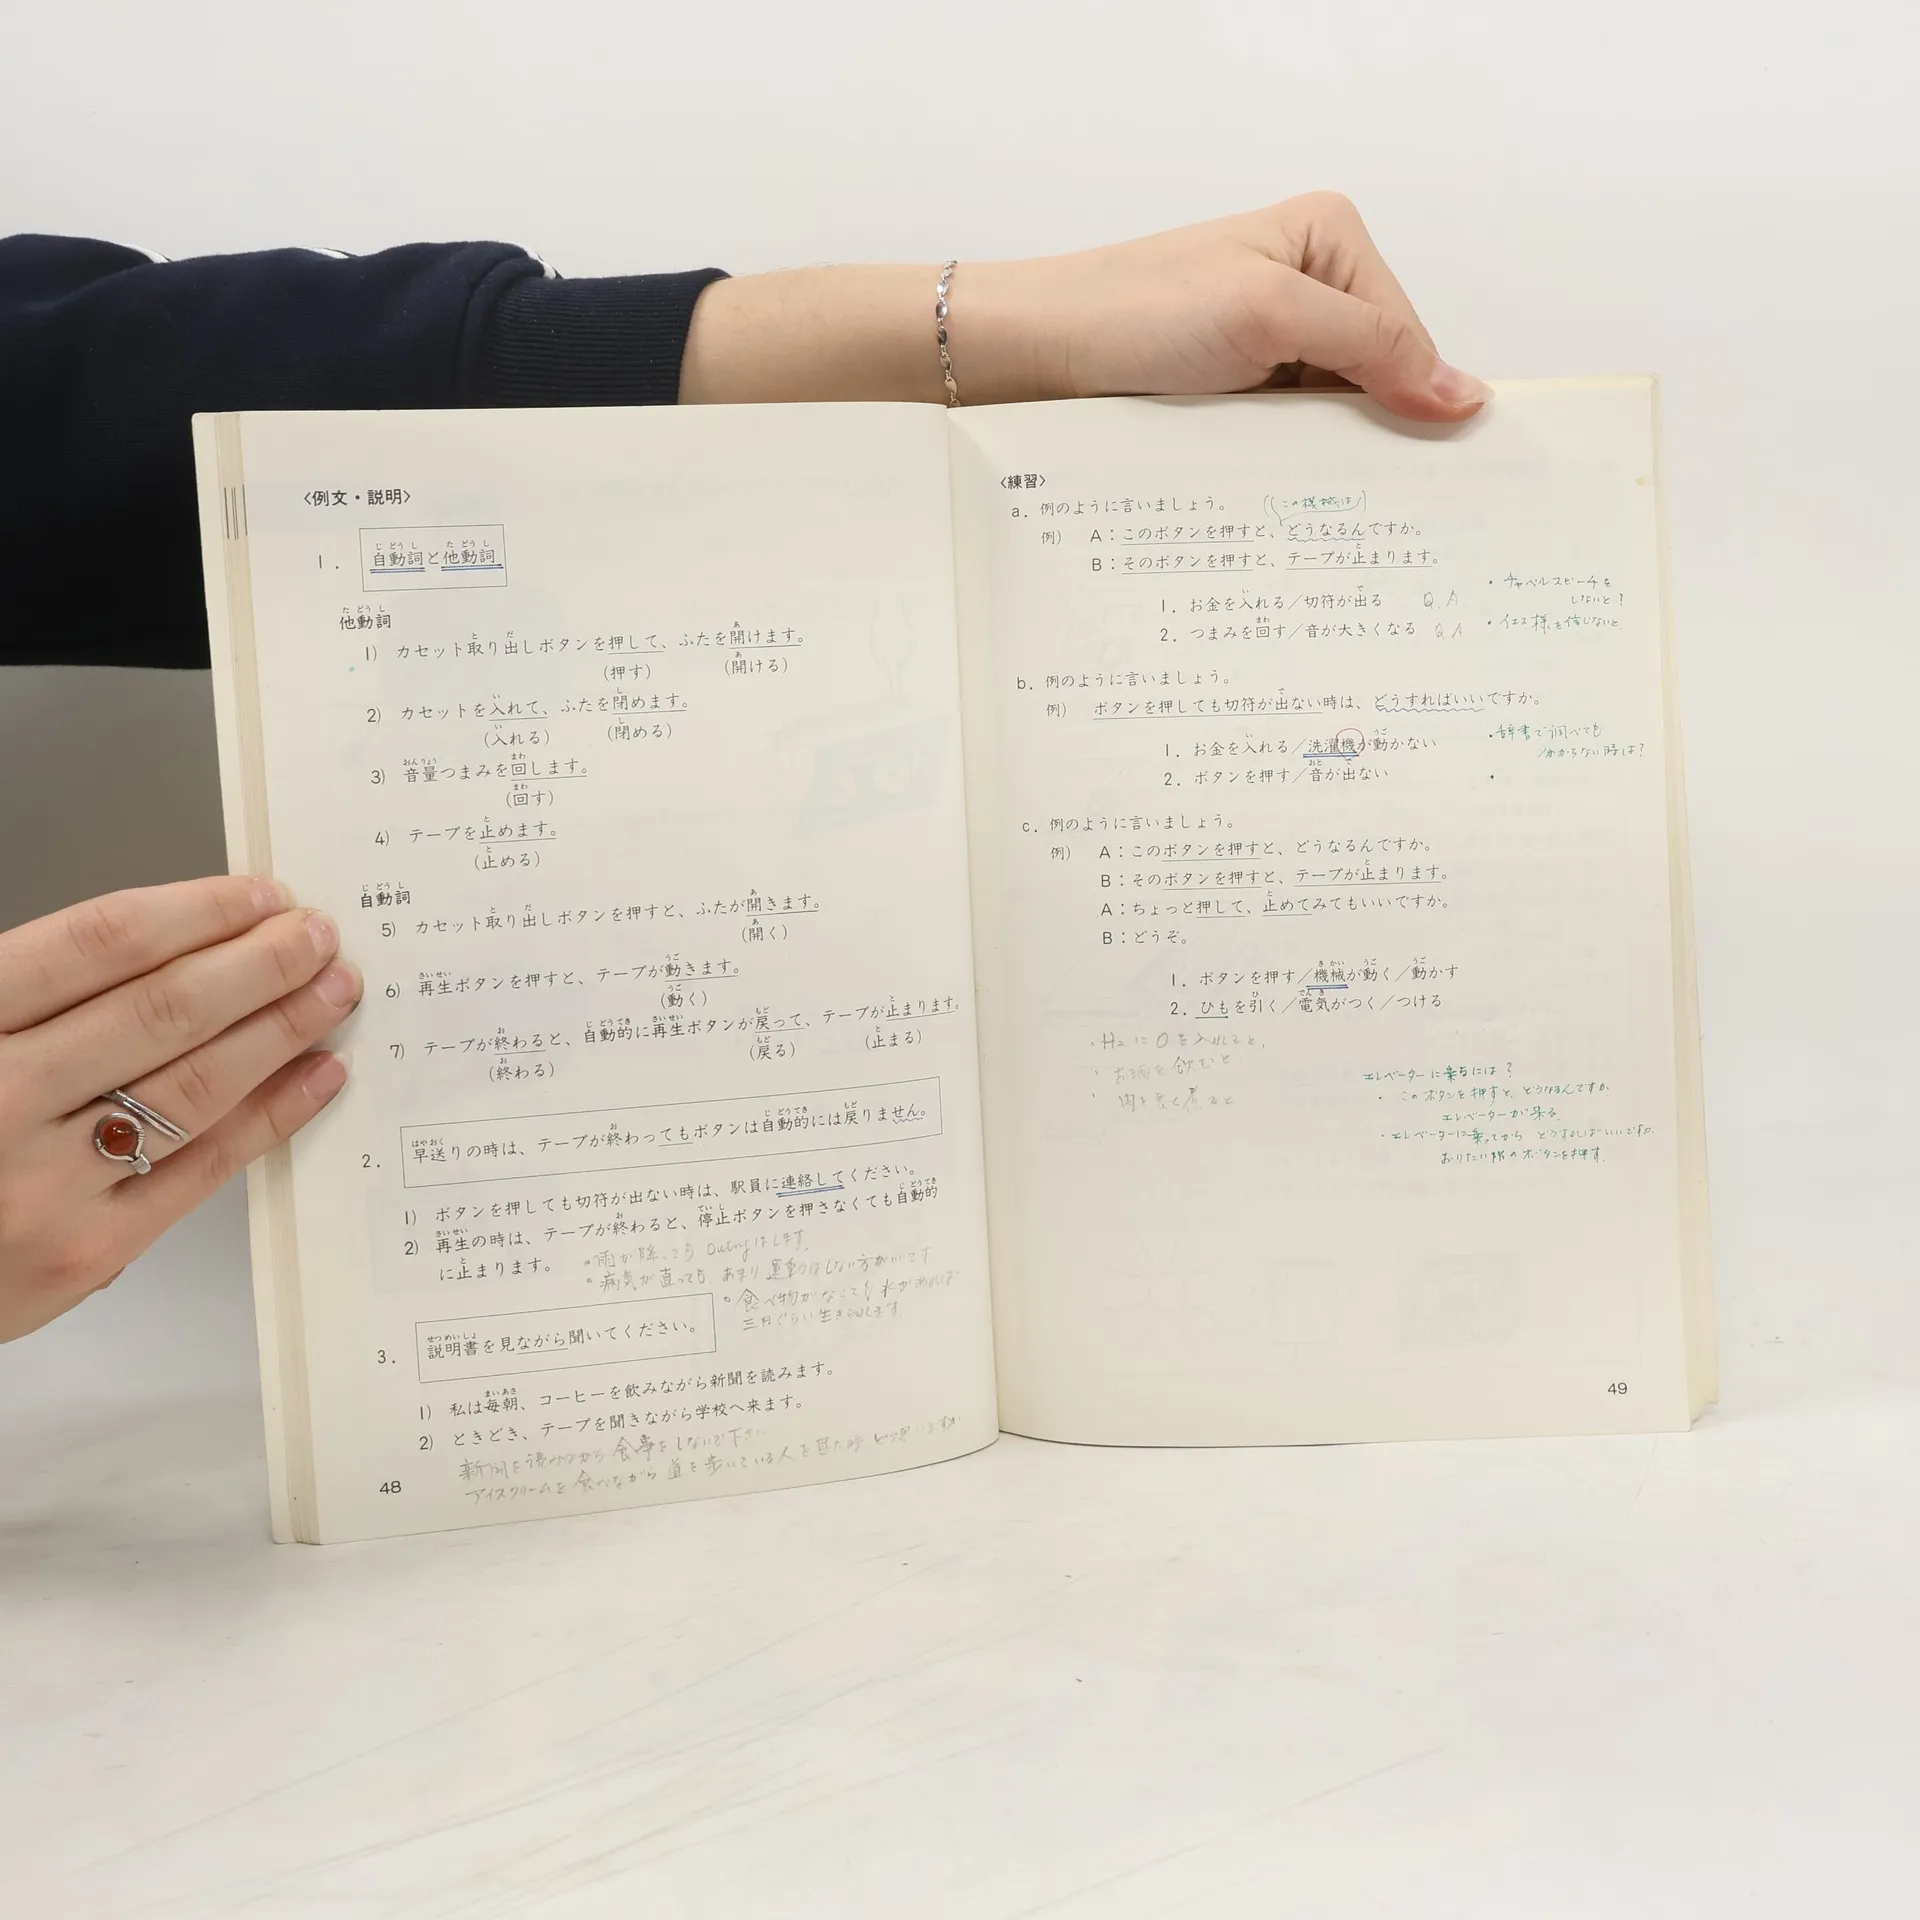 〈例文・説明〉
1. 自動詞と他動詞
他動詞
1) カセット取り出しボタンを押して、ふたを開けます。
(押す) (開ける)
2) カセットを入れて、ふたを閉めます。
(入れる) (閉める)
3) 音量つまみを回します。
(回す)
4) テープを止めます。
(止める)
自動詞
5) カセット取り出しボタンを押すと、ふたが開きます。
(開く)
6) 再生ボタンを押すと、テープが動きます。
(動く)
7) テープが終わると、自動的に再生ボタンが戻って、テープが止まります。
(終わる) (戻る) (止まる)
2. 早送りの時は、テープが終わってもボタンは自動的には戻りません。
1) ボタンを押しても切符が出ない時は、駅員に連絡してください。
2) 再生の時は、テープが終わると、停止ボタンを押さなくても自動的
に止まります。
雨が降っても outing はします。
病気が直っても、あまり運動はしない方がいいです
食べ物がなくても水があれば
三月ぐらい生きられます
3. 説明書を見ながら聞いてください。
1) 私は毎朝、コーヒーを飲みながら新聞を読みます。
2) ときどき、テープを聞きながら学校へ来ます。
新聞を読みながら食事をしないで下さい
アイスクリームを食べながら道を歩いている人を見た時どう思いますか
48
〈練習〉
a. 例のように言いましょう。 (この機械は)
例) A：このボタンを押すと、どうなるんですか。
B：そのボタンを押すと、テープが止まります。
1. お金を入れる／切符が出る Q.A.
2. つまみを回す／音が大きくなる Q.A
・チャペルスピーチを
しないと？
・イエス様を信じないと
b. 例のように言いましょう。
例) ボタンを押しても切符が出ない時は、どうすればいいですか。
1. お金を入れる／洗濯機が動かない
2. ボタンを押す／音が出ない
・辞書で調べても
分からない時は？
c. 例のように言いましょう。
例) A：このボタンを押すと、どうなるんですか。
B：そのボタンを押すと、テープが止まります。
A：ちょっと押して、止めてみてもいいですか。
B：どうぞ。
1. ボタンを押す／機械が動く／動かす
2. ひもを引く／電気がつく／つける
・H₂にOを入れると、
・お酒を飲むと
・肉を長く煮ると
エレベーターに乗るには？
・このボタンを押すと、どうなるんですか
エレベーターが来る
・エレベーターに乗ってから どうすればいいですか
おりたい階のボタンを押す
49